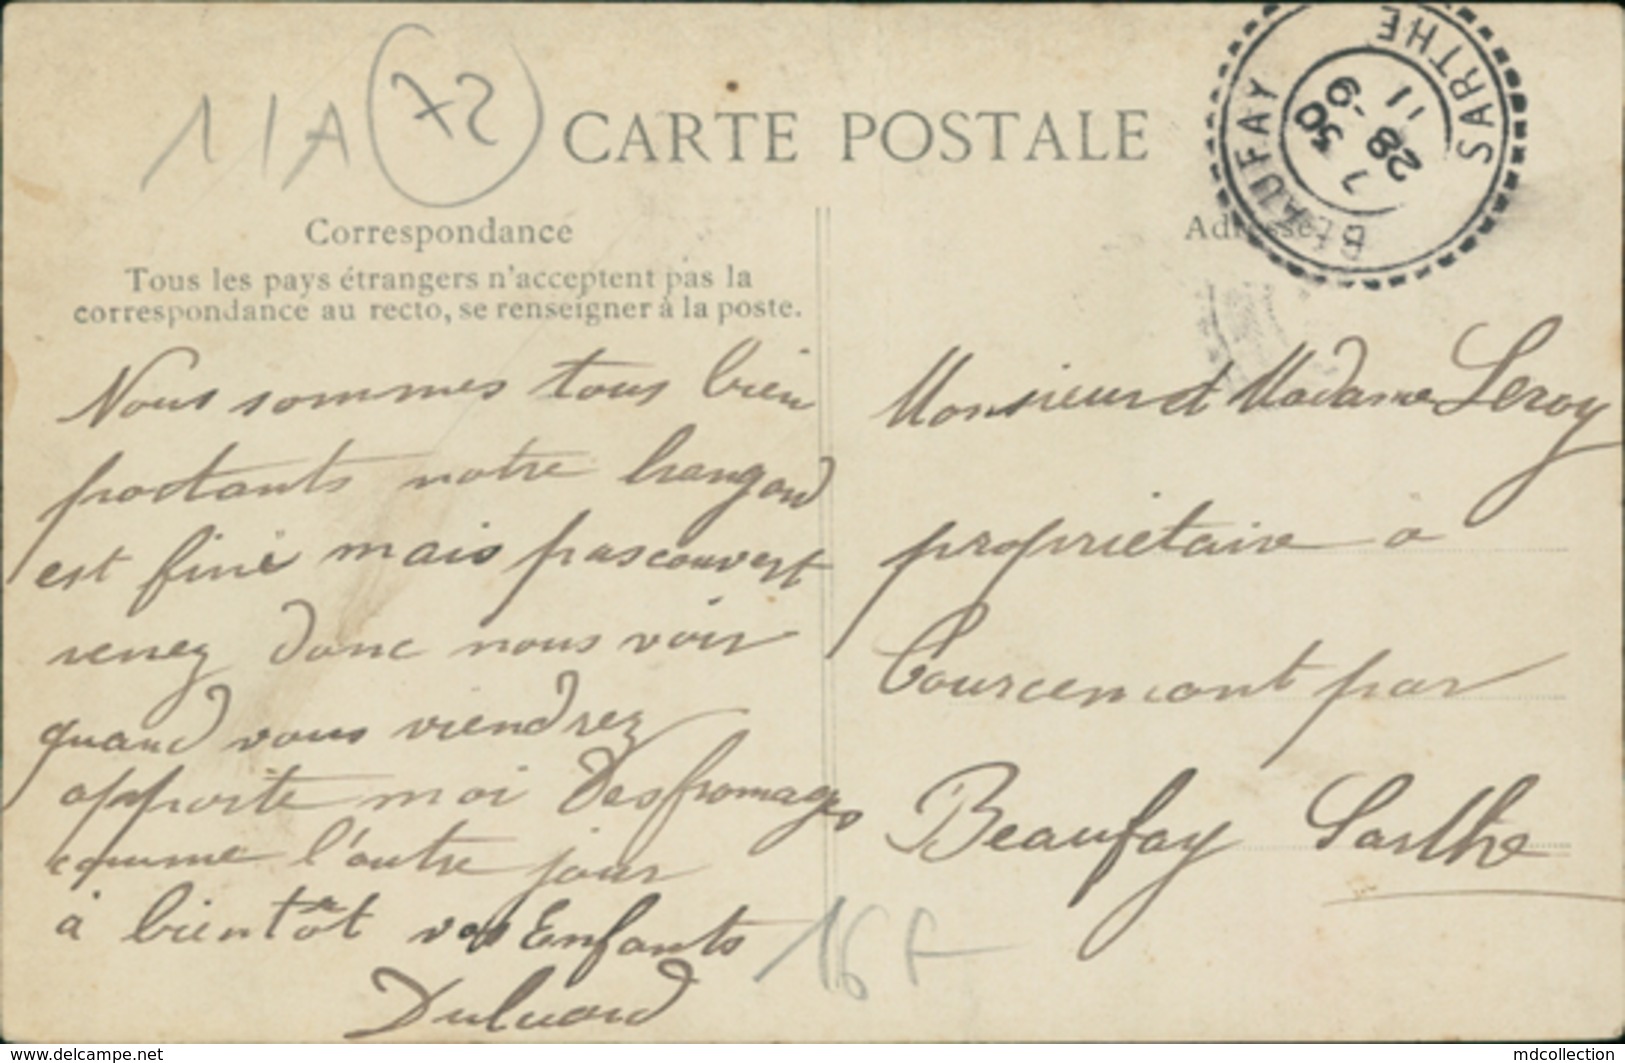 11A 72
CARTE POSTALE
BEAUFAY
SARTHE
7 30
28 -9
11
Correspondance
Adresse
Tous les pays étrangers n'acceptent pas la
correspondance au recto, se renseigner à la poste.
Nous sommes tous bien
portants notre hangard
est fini mais pas couvert
venez donc nous voir
quand vous viendrez
apporte moi Des fromages
comme l'autre jour
à bientôt vos Enfants
Duluard
Monsieur et Madame Leroy
propriétaire a
Courcemont par
Beaufay Sarthe
16 F
www.delcampe.net
mdcollection